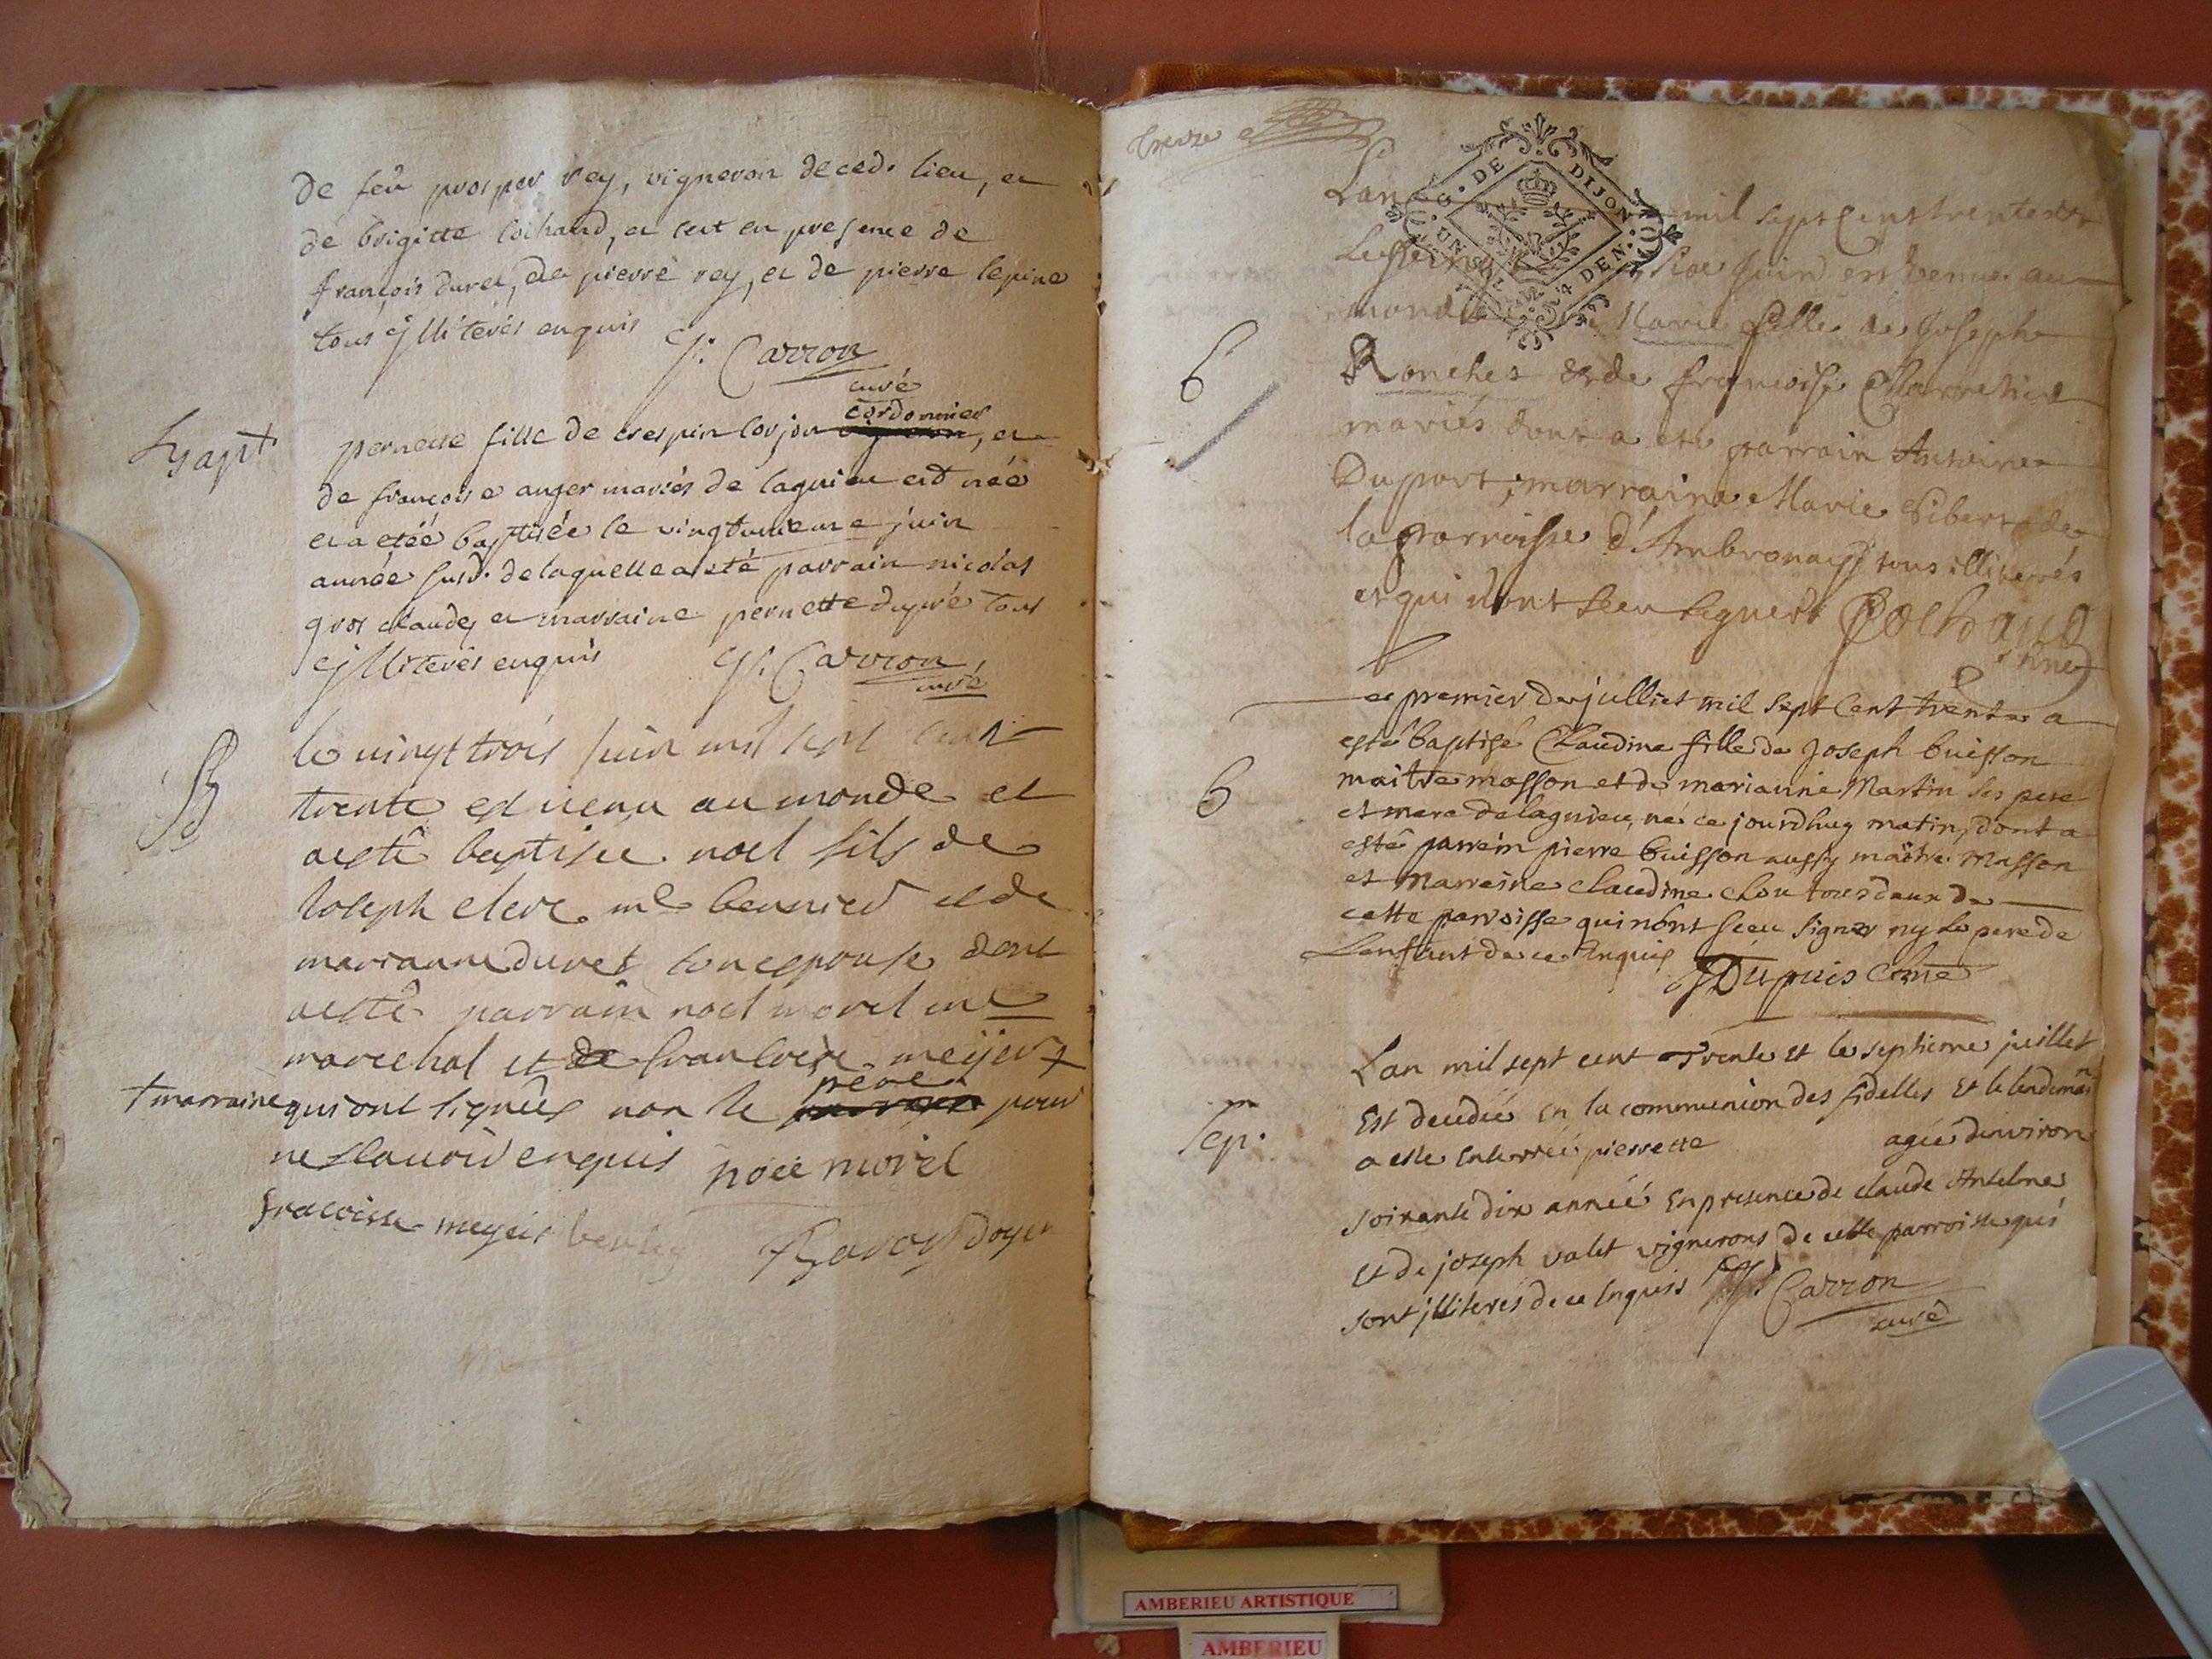 de feu prosper rey, vigneron de ced. lieu, et
de brigitte cochand, et cect en presence de
françois duret, de pierre rey, et de pierre lepine
tous jlliterés enquis J. Carron
curé
Bapt.
cordonnier
pernette fille de crespin corjon, et
de françoise anger mariés de lagnieu est née
et a etée baptisée le vingtunieme juin
année susd. de laquelle a eté parrain nicolas
gros claude, et marraine pernette dupré tous
jlliterés enquis J. Carron,
curé
B
le vingt trois juin mil sept cent
trente est venu au monde et
a esté baptisee noel fils de
Joseph clerc me et de
marianne duret son espouse dont
a esté parrain noel morel me
marechal et de francoise meijer +
père
+ marraine qui ont signées non le pour
ne scavoir enquis noel morel
francoisse meyer doyen
treize
Lan mil sept Cent trente
Juin est venue au
monde Marie fille de Joseph
B
Ronchet et de françoise
mariés dont a eté parrain Antoine
Duport, marraine Marie Gibert de
la parroisse d'Ambronay tous illiterés
et qui n'ont sceu signer Cochand
B
Le premier de julliet mil sept Cent trente a
esté baptisé Claudine fille de Joseph buisson
maitre masson et de marianne Martin ses pere
et mere de lagnieu, né ce jourdhuy matin, dont a
esté parrein pierre buisson aussy maitre Masson
et Marreine claudine chou tous deux de
cette parroisse qui n'ont sceu signer ny le pere de
L'enfant de ce Enquis
Dupuis Chne
L'an mil sept cent Trente et le septieme juillet
Est decedée en la communion des fidelles Et le lendemain
Sep.
a este Enterrée pierrette agée d'environ
soixante dix année En presence de claude Antelme
Et de joseph valet vignerons de cette parroisse qui
sont jlliterés de ce Enquis J. Carron
curé
G. DE DIJON
UN S. 4 DEN.
AMBERIEU ARTISTIQUE
AMBERIEU